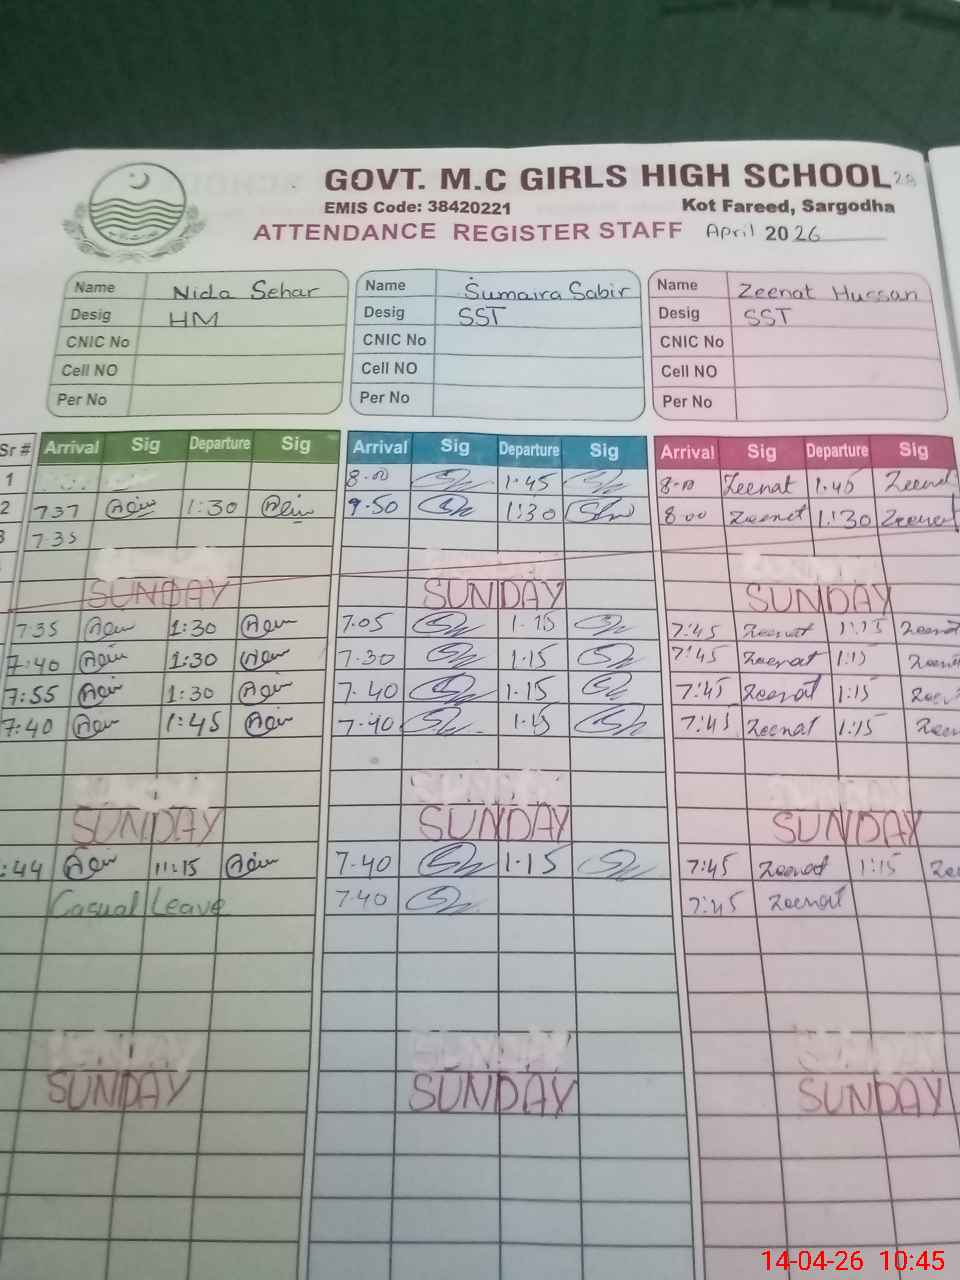 GOVT. M.C GIRLS HIGH SCHOOL
EMIS Code: 38420221 Kot Fareed, Sargodha
ATTENDANCE REGISTER STAFF April 2026
Name Nida Sehar Name Sumaira Sabir Name Zeenat Hussan
Desig HM Desig SST Desig SST
CNIC No CNIC No CNIC No
Cell NO Cell NO Cell NO
Per No Per No Per No
Sr # Arrival Sig Departure Sig Arrival Sig Departure Sig Arrival Sig Departure Sig
1 8.00 1.45 8.00 Zeenat 1.45 Zeenat
2 737 1:30 9.50 1:30 8.00 Zeenat 1:30 Zeenat
3 7.35
SUNDAY SUNDAY SUNDAY
7.35 1:30 7.05 1.15 7:45 Zeenat 1:15 Zeenat
7:40 1:30 7.30 1.15 7:45 Zeenat 1:15 Zeenat
7:55 1:30 7.40 1.15 7:45 Zeenat 1:15 Zeenat
7:40 1:45 7.40 1.15 7:45 Zeenat 1:15 Zeenat
SUNDAY SUNDAY SUNDAY
:44 11:15 7.40 1.15 7:45 Zeenat 1:15
Casual Leave 7.40 7:45 Zeenat
SUNDAY SUNDAY SUNDAY
14-04-26 10:45